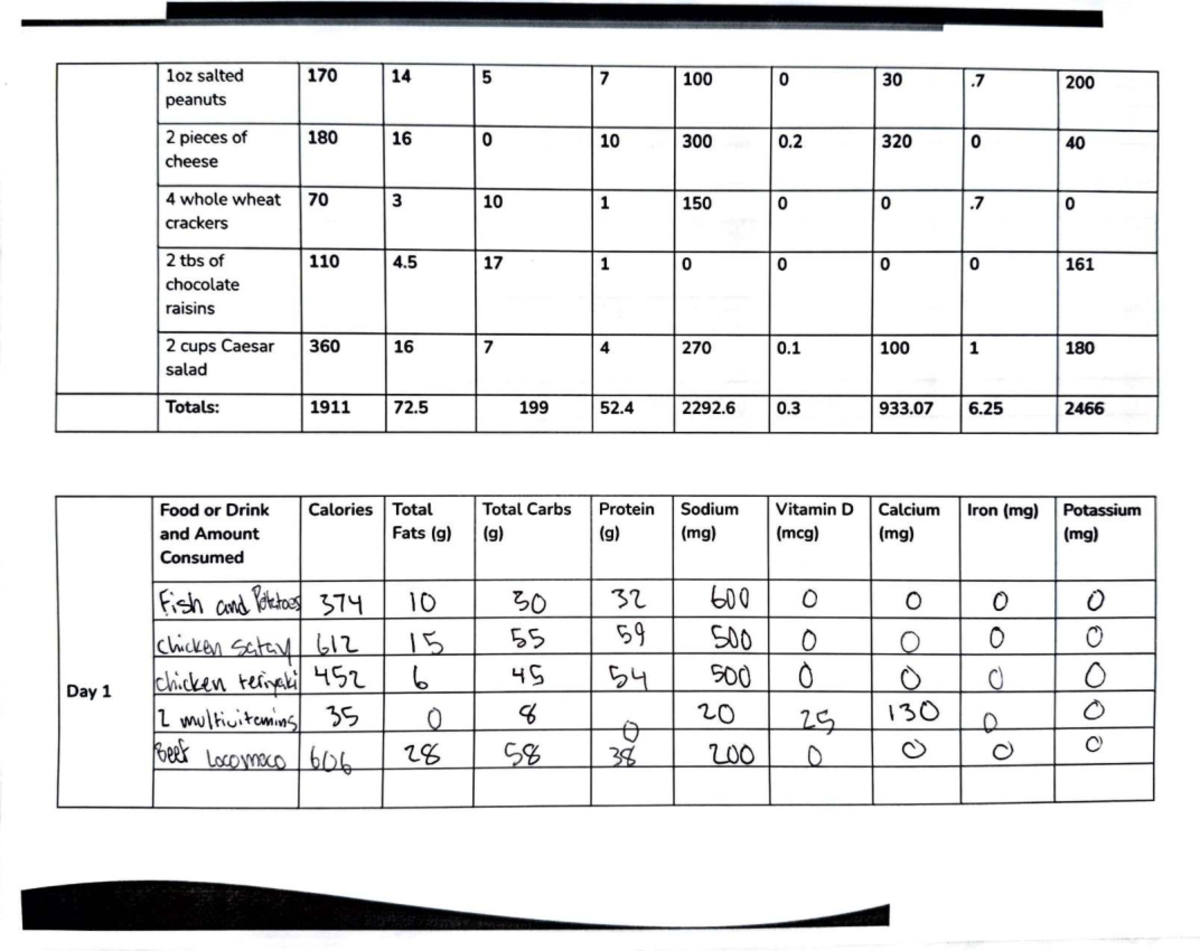 1oz salted peanuts 170 14 5 7 100 0 30 .7 200
2 pieces of cheese 180 16 0 10 300 0.2 320 0 40
4 whole wheat crackers 70 3 10 1 150 0 0 .7 0
2 tbs of chocolate raisins 110 4.5 17 1 0 0 0 0 161
2 cups Caesar salad 360 16 7 4 270 0.1 100 1 180
Totals: 1911 72.5 199 52.4 2292.6 0.3 933.07 6.25 2466
Food or Drink and Amount Consumed Calories Total Fats (g) Total Carbs (g) Protein (g) Sodium (mg) Vitamin D (mcg) Calcium (mg) Iron (mg) Potassium (mg)
Day 1
Fish and Potatoes 374 10 30 32 600 0 0 0 0
chicken satay 612 15 55 59 500 0 0 0 0
chicken teriyaki 452 6 45 54 500 0 0 0 0
2 multivitamins 35 0 8 0 20 25 130 0 0
Beef Locomoco 606 28 58 38 200 0 0 0 0